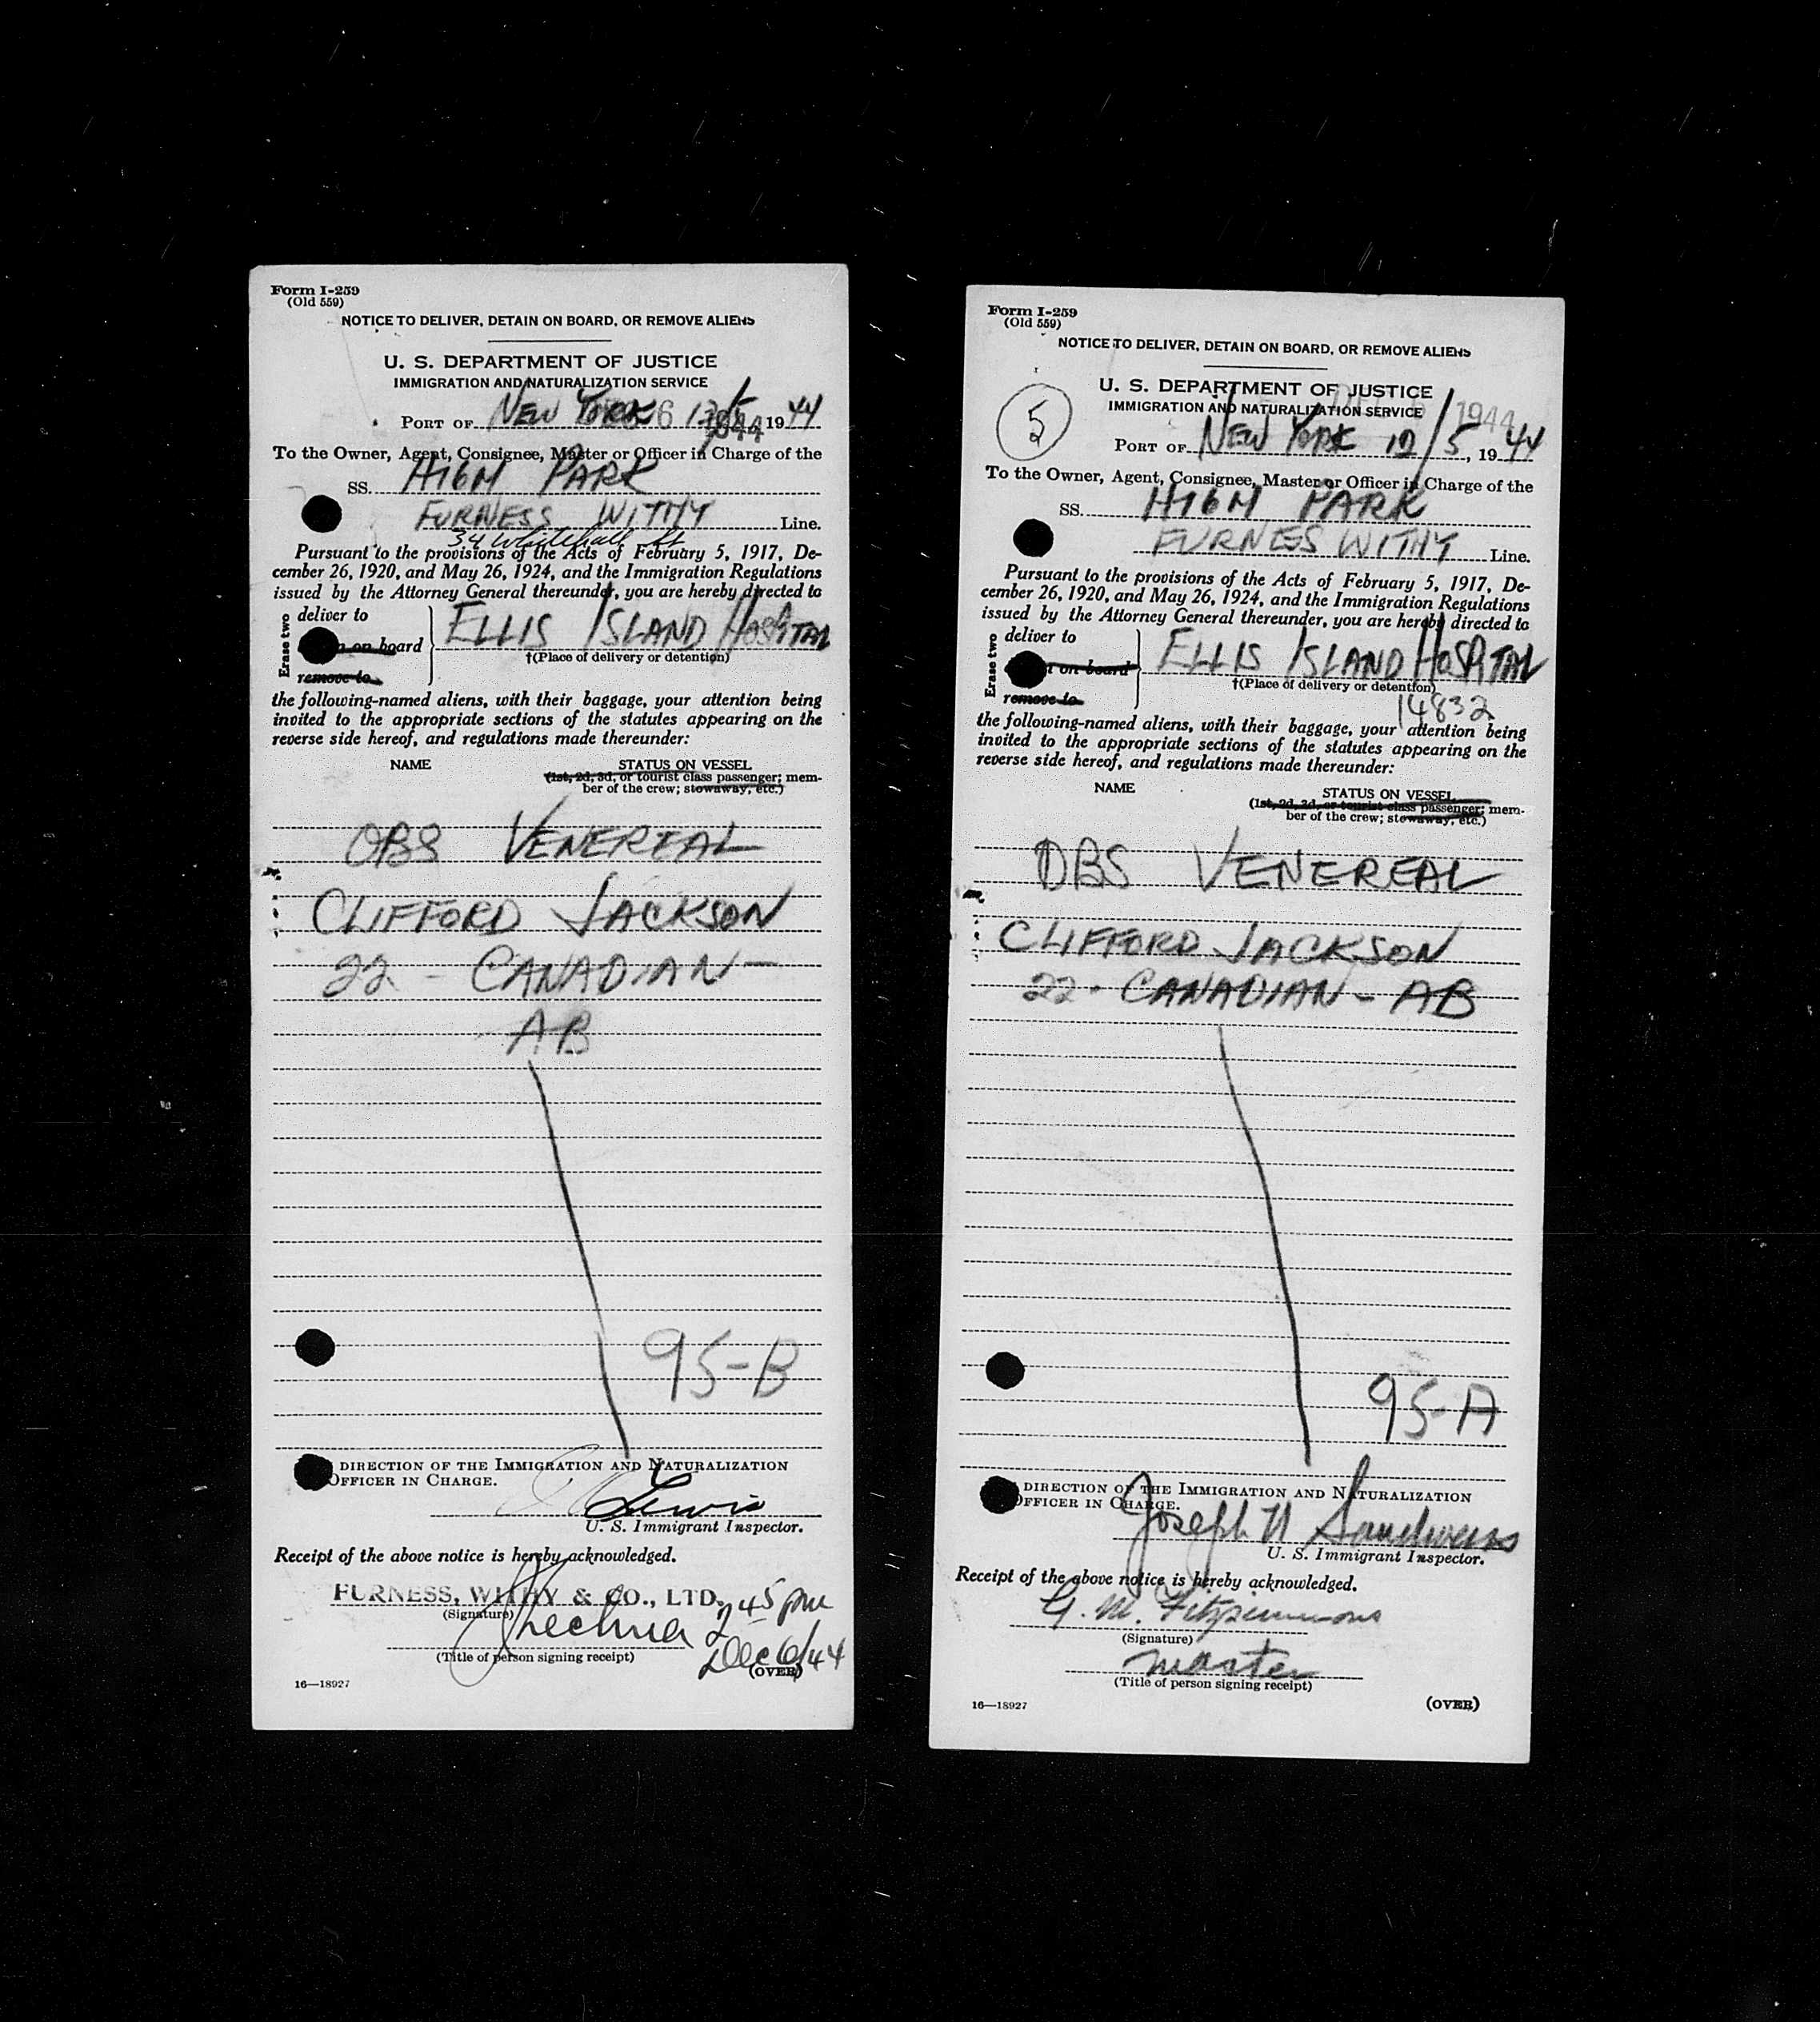 Form I-259
(Old 559)
NOTICE TO DELIVER, DETAIN ON BOARD, OR REMOVE ALIENS
U. S. DEPARTMENT OF JUSTICE
IMMIGRATION AND NATURALIZATION SERVICE
PORT OF NEW YORK 12/5 1944
To the Owner, Agent, Consignee, Master or Officer in Charge of the
SS. HIGH PARK
FURNESS WITHY Line.
34 Whitehall St
Pursuant to the provisions of the Acts of February 5, 1917, De-
cember 26, 1920, and May 26, 1924, and the Immigration Regulations
issued by the Attorney General thereunder, you are hereby directed to
Erase two
deliver to
on board
remove to
ELLIS ISLAND HOSPITAL
†(Place of delivery or detention)
the following-named aliens, with their baggage, your attention being
invited to the appropriate sections of the statutes appearing on the
reverse side hereof, and regulations made thereunder:
NAME STATUS ON VESSEL
(1st, 2d, 3d, or tourist class passenger; mem-
ber of the crew; stowaway, etc.)
OBS VENEREAL
CLIFFORD JACKSON
22 - CANADIAN -
AB
95-B
DIRECTION OF THE IMMIGRATION AND NATURALIZATION
OFFICER IN CHARGE.
Lewis
U. S. Immigrant Inspector.
Receipt of the above notice is hereby acknowledged.
FURNESS, WITHY & CO., LTD. 2 45 pm
(Signature)
Dec 6/44
(Title of person signing receipt)
(OVER)
16—18927
Form I-259
(Old 559)
NOTICE TO DELIVER, DETAIN ON BOARD, OR REMOVE ALIENS
5
U. S. DEPARTMENT OF JUSTICE
IMMIGRATION AND NATURALIZATION SERVICE
1944
PORT OF NEW YORK 12/5, 1944
To the Owner, Agent, Consignee, Master or Officer in Charge of the
SS. HIGH PARK
FURNESS WITHY Line.
Pursuant to the provisions of the Acts of February 5, 1917, De-
cember 26, 1920, and May 26, 1924, and the Immigration Regulations
issued by the Attorney General thereunder, you are hereby directed to
Erase two
deliver to
on board
remove to
ELLIS ISLAND HOSPITAL
†(Place of delivery or detention)
14832
the following-named aliens, with their baggage, your attention being
invited to the appropriate sections of the statutes appearing on the
reverse side hereof, and regulations made thereunder:
NAME STATUS ON VESSEL
(1st, 2d, 3d, or tourist class passenger; mem-
ber of the crew; stowaway, etc.)
OBS VENEREAL
CLIFFORD JACKSON
22 - CANADIAN - AB
95-A
DIRECTION OF THE IMMIGRATION AND NATURALIZATION
OFFICER IN CHARGE.
Joseph N Sandweiss
U. S. Immigrant Inspector.
Receipt of the above notice is hereby acknowledged.
G. M. Fitzsimmons
(Signature)
Master
(Title of person signing receipt)
16—18927
(OVER)